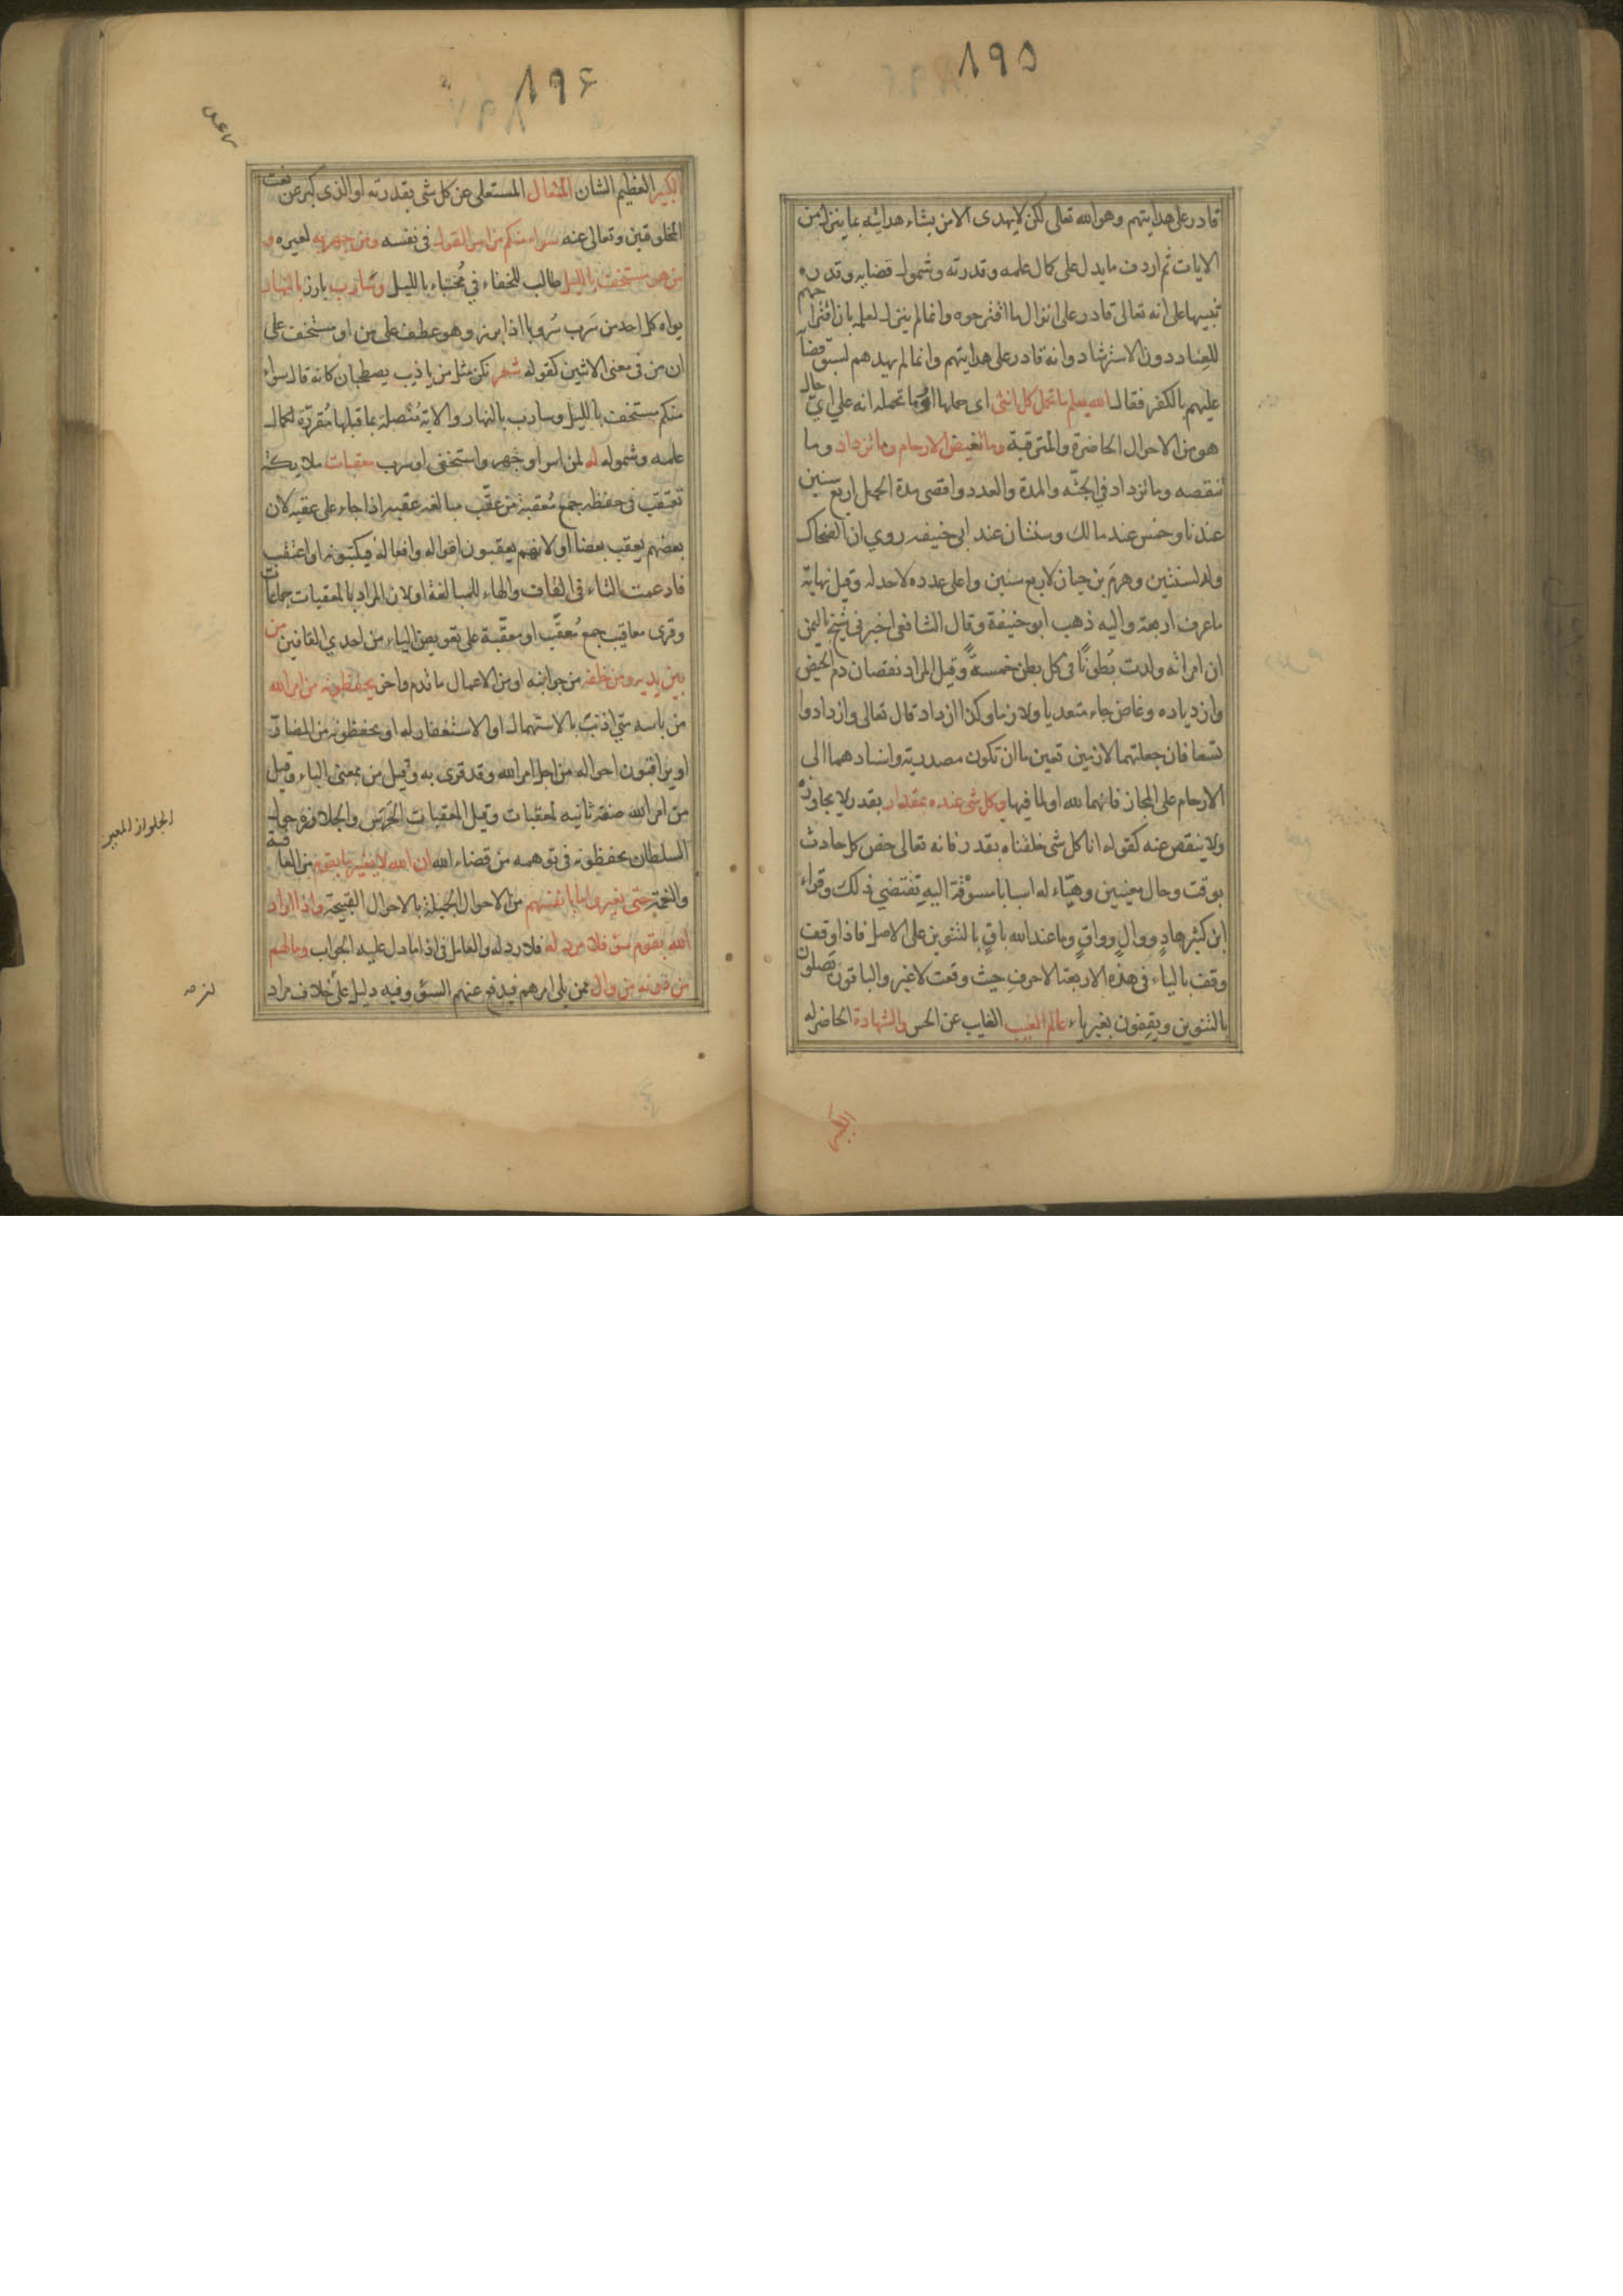 ٨٩٥
قادر على هدايتهم وهو الله تعالى لكن لا يهدى الا من يشاء هدايته بما ينزل من
الايات ثم اردف ما يدل على كمال علمه وقدرته وشمول قضايه وقدره
تنبيها على انه تعالى قادر على انزال ما اقترحوه وانما لم ينزل لعلمه بان اقتراحهم
للعناد دون الاسترشاد وانه قادر على هدايتهم وانما لم يهدهم لسبق قضآ
عليهم بالكفر فقال الله يعلم ما تحمل كل انثى اى حملها او ما تحمله انه على اىّ حال
هو من الاحوال الحاضرة والمترقبة وما تغيض الارحام وما تزداد وما
تنقصه وما تزداد في الجثّه والمدة والعدد واقصى مدة الحمل اربع سنين
عندنا وخمس عند مالك وسنتان عند ابى حنيفه روي ان الضحاك
ولد لسنتين وهرم بن حيان لاربع سنين واعلى عدده لاحد له وقيل نهايته
ما عرف اربعة واليه ذهب ابو حنيفة وقال الشافعى اخبرنى شيخ باليمن
ان امراته ولدت بُطونًا فى كل بطن خمسةً وقيل المراد نقصان دم الحيض
وازدياده وغاض جاء متعديا ولازما وكذا ازداد قال تعالى وازدادوا
تسعا فان جعلتهما لازمين تعين ما ان تكون مصدرية واسنادهما الى
الارحام على المجاز فانهما لله او لما فيها وكل شى عنده بمقدار بقدر لا يجاوزه
ولا ينقص عنه كقوله انا كل شى خلقناه بقدر فانه تعالى خص كل حادث
بوقت وحال معينين وهيّاء له اسبابا مسوقة اليهِ تقتضي ذلك وقراء
ابن كثير هادٍ ووالٍ وواقٍ وما عند الله باقٍ بالتنوين على الاصل فاذا وقفت
وقف بالياء فى هذه الاربعة الاحرف حيث وقعت لا غير والباقون يصلون
بالتنوين ويقفون بغير ياء عالم الغيب الغايب عن الحس والشهادة الحاضر له
الكبير
٨٩۶
الكبير العظيم الشان المتعال المستعلى عن كل شى بقدرته او الذى كبر عن نعت
المخلوقين وتعالى عنه سواء منكم من اسر القول فى نفسه ومن جهر به لغيره و
من هو مستخف بالليل طالب للخفاء في مُختباء بالليل وسارب بارز بالنهار
يراه كل احد من سَرب سُروبا اذا برز وهو عطف على من او مستخف على
ان من فى معنى الاثنين كقوله شعر نكن مثل من يا ذيب يصطحبان كانه قال سواء
منكم مستخف بالليل وسارب بالنهار والاية مُتصلة بما قبلها مُقرّرة لكمال
علمه وشموله له لمن اسر او جهر واستخفى او سرب معقبات ملايكة
تعتقب فى حفظه جمع مُعقبة من عقّب مبالغه عقبه اذا جاء على عقبه لان
بعضهم يعقب بعضا او لانهم يعقبون اقواله وافعاله فيكتبونه او اعتقب
فادغمت التاء فى القاف والهاء للمبالغة او لان المراد بالمعقبات جماعات
وقرى معاقيب جمع مُعقّب او معقّبة على تعويض الياء من احدي القافين من
بين يديه ومن خلفه من جوانبه او من الاعمال ما قدم واخر يحفظونه من امر الله
من باسه متى اذنب بالاستمهال او الاستغفار له او يحفظونه من المضآرّ
او يراقبون احواله من اجل امر الله وقد قرى به وقيل من بمعنى الباء وقيل
من امر الله صفة ثانيه لمعقبات وقيل المعقبات الحَرَس والجلاوزة حول
السلطان يحفظونه فى توهمه من قضاء الله ان الله لا يغير ما بقوم من العافية
والنعمة حتى يغيروا ما بانفسهم من الاحوال الجميلة بالاحوال القبيحة واذا اراد
الله بقوم سؤ فلا مرد له فلا رد له والعامل فى اذا ما دل عليه الجواب وما لهم
من دونه من وال ممن يلى امرهم فيدفع عنهم السؤ وفيه دليل على خلاف مراد
الجلواز